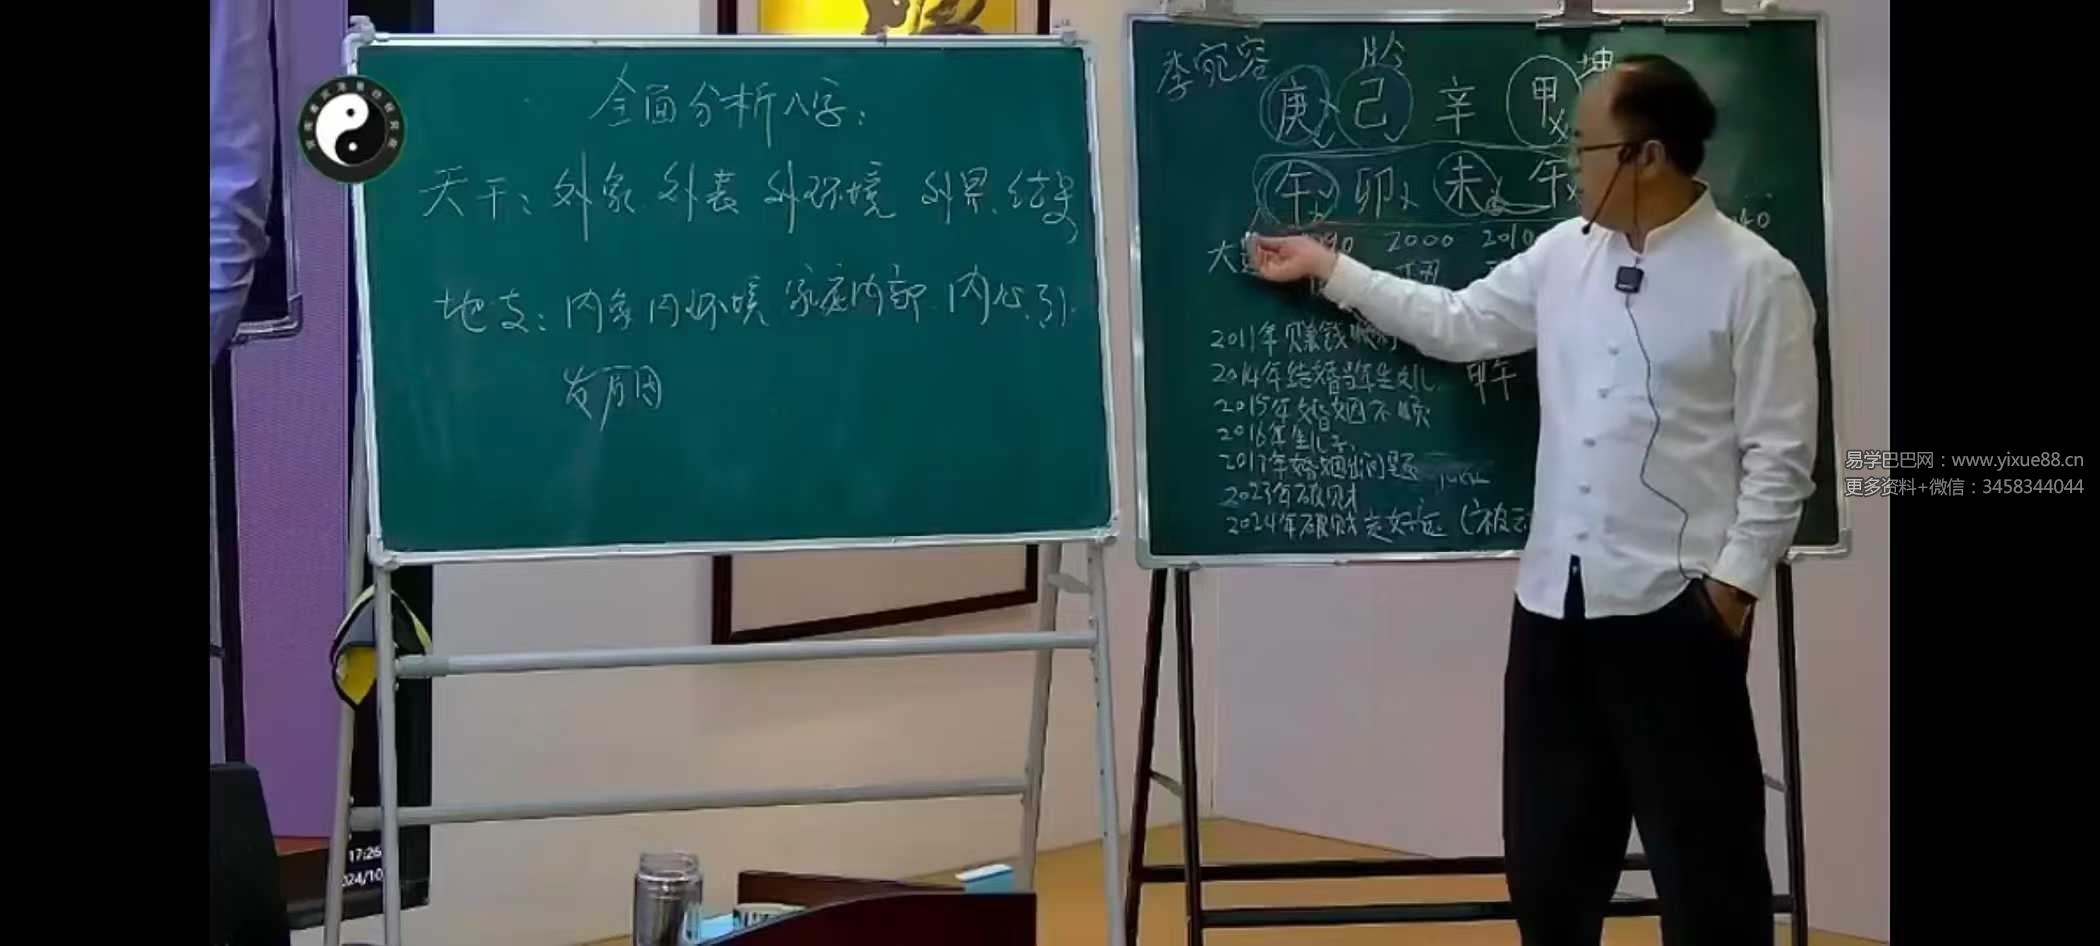 全面分析八字：
天干：外象 外表 外环境 外界、结果
地支：内象 内环境 家庭内部 内心、引
发原因
李宛容 脸 坤
庚 己 辛 甲
午 卯 未 午
大运 1990 2000 2010 40
2011年 赚钱
2014年结婚当年生女儿 甲午
2015年婚姻不顺
2016年生儿子，
2017年婚姻出问题
2023年破财
2024年破财 走好运（被
易学巴巴网：www.yixue88.cn
更多资料+微信：3458344044
17:26
024/10